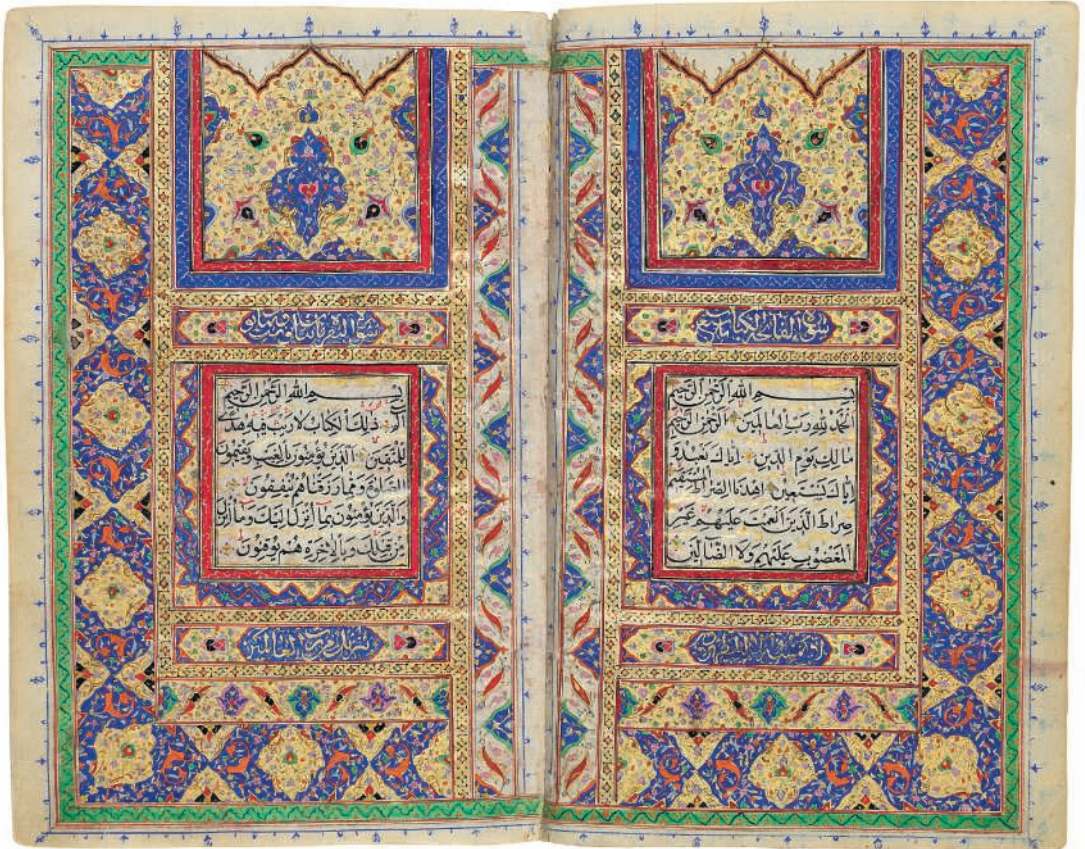 سورة الفاتحة الكتاب سبع
بسم الله الرحمن الرحيم
الحمد لله رب العالمين الرحمن الرحيم
مالك يوم الدين اياك نعبد و
اياك نستعين اهدنا الصراط المستقيم
صراط الذين انعمت عليهم غير
المغضوب عليهم ولا الضالين
لا يمسه الا المطهرون
سورة البقرة مائتان و
بسم الله الرحمن الرحيم
الم ذلك الكتاب لا ريب فيه هدى
للمتقين الذين يؤمنون بالغيب ويقيمون
الصلوة ومما رزقناهم ينفقون
والذين يؤمنون بما انزل اليك وما انزل
من قبلك وبالاخرة هم يوقنون
تنزيل من رب العالمين